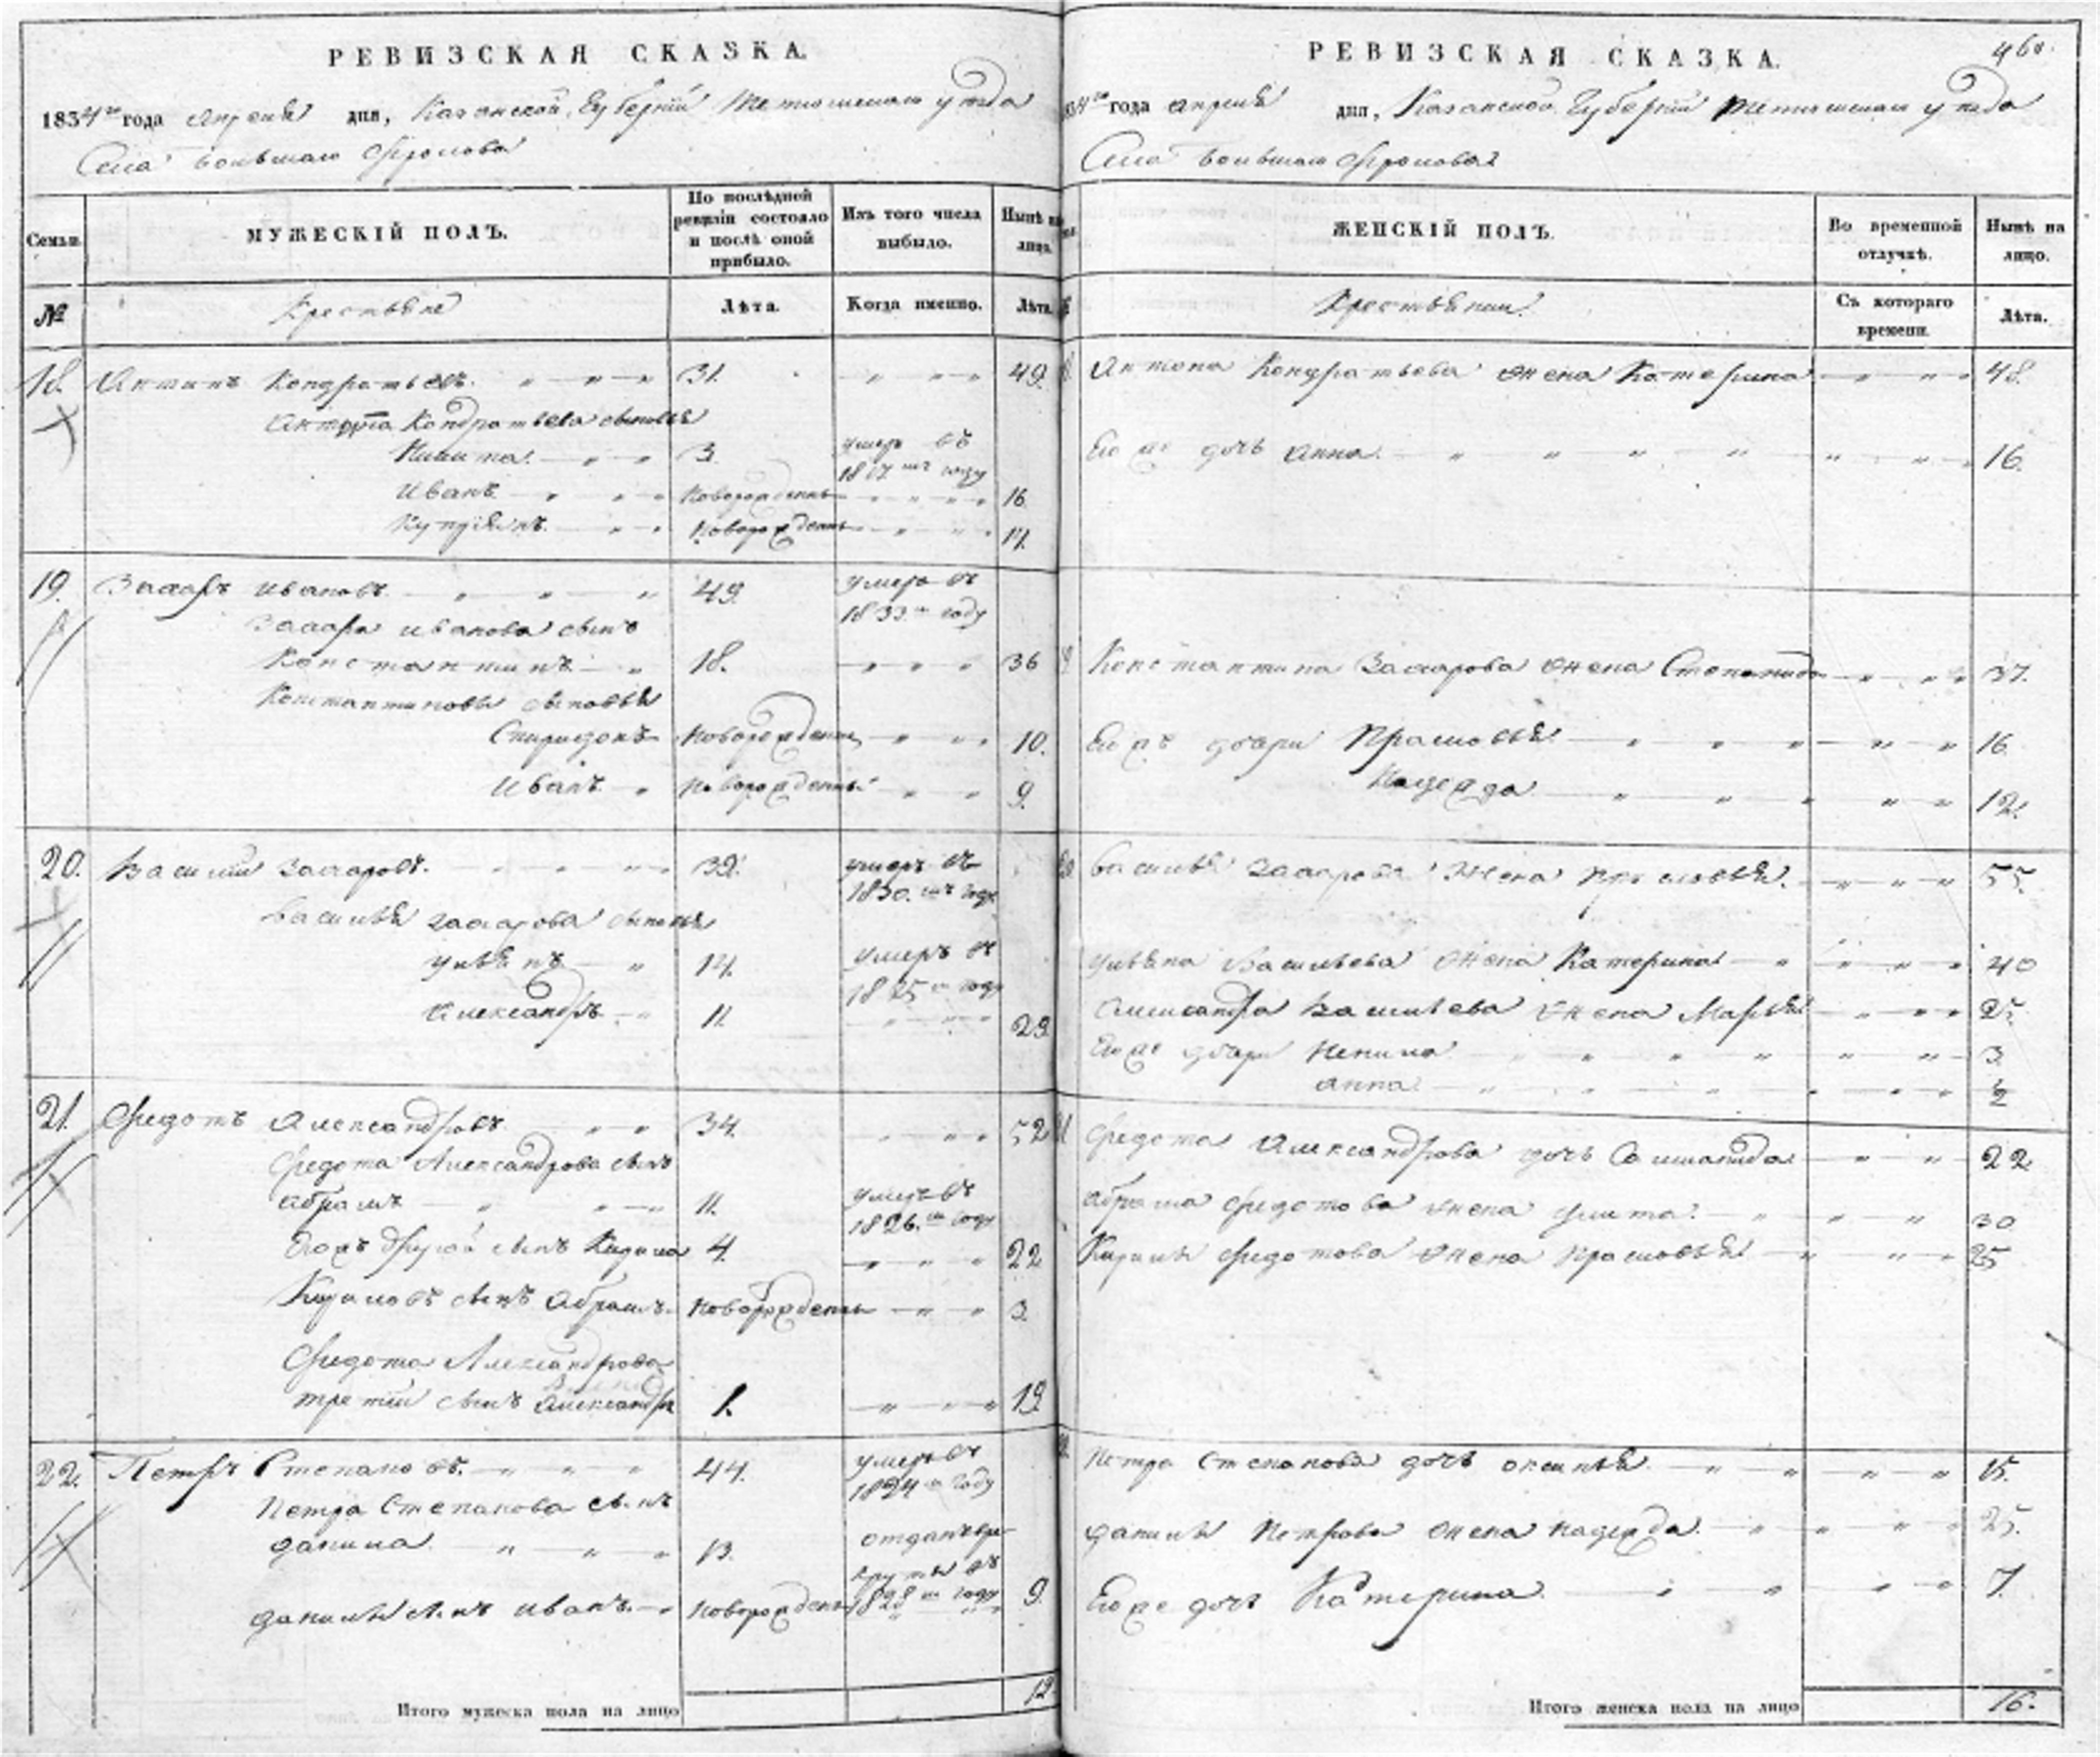 РЕВИЗСКАЯ СКАЗКА.
1834го года Апреля дня, Казанской Губернїи Тетюшскаго уезда
Села Большаго Фролова
Семьи. МУЖЕСКІЙ ПОЛЪ. По послѣдней ревизіи состояло и послѣ оной прибыло. Изъ того числа выбыло. Нынѣ на лицо.
№ Крестьяне Лѣта. Когда именно. Лѣта.
18. Антипъ Кондратьевъ. 31. 49.
Кондратьева сыновья
Никита. 3. умеръ въ 1817мъ году
Иванъ Новорожденъ 16
Купріянъ. Новорожденъ 14.
19. Захаръ Ивановъ. 49. умеръ въ 1833м году
Захара Иванова сынъ
Константинъ 18. 36
Константиновы сыновья
Спиридонъ Новорожденъ 10.
Иванъ Новорожденный 9.
20. Василий Захаровъ. 39. умеръ въ 1830.мъ году
Василья Захарова сыновья
Ульянъ 14. умеръ въ 1825м году
Александръ 11. 29.
21. Федотъ Александровъ 34. 52
Федота Александрова сынъ
Абрамъ 11. умеръ въ 1826.м году
Его же другой сынъ Кирила 4. 22
Кириловъ сынъ Абрамъ. Новорожденъ 3.
Федота Александрова
третий сынъ Александръ 1. 19
22. Петръ Степановъ. 44. умеръ въ 1824м году
Петра Степанова сынъ
Данила 13. отданъ въ рекруты въ 1828м году
Данилы сынъ Иванъ. Новорожденъ 9.
Итого мужеска пола на лицо 12.
РЕВИЗСКАЯ СКАЗКА.
460.
1834го года Апреля дня, Казанской Губернїи Тетюшскаго уезда
Села Большаго Фролова
ЖЕНСКІЙ ПОЛЪ. Во временной отлучкѣ. Нынѣ на лицо.
Крестьянки. Съ котораго времени. Лѣта.
Антипа Кондратьева жена Катерина 48.
Его же дочь Анна. 16.
Константина Захарова жена Степанида 37.
Его же дочери Прасковья 16
Надежда 12.
20 Василья Захарова жена Прасковья. 55.
Ульяна Васильева жена Катерина 40
Александра Васильева жена Марья 25.
Его же дочери 3
Анна ½
21 Федота Александрова дочь 22
Абрама Федотова жена Улита. 30
Кирилы Федотова жена Прасковья 25
22 Петра Степанова дочь Оксинья 15.
Данилы Петрова жена Надежда. 25.
Его же дочь Катерина 7.
Итого женска пола на лицо 16.